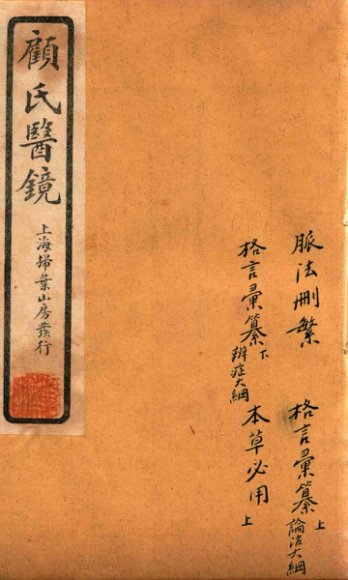 顧氏醫鏡
上海掃葉山房發行
脈法刪繁
格言彙纂上
論治大綱
格言彙纂下
辨症大綱
本草必用上